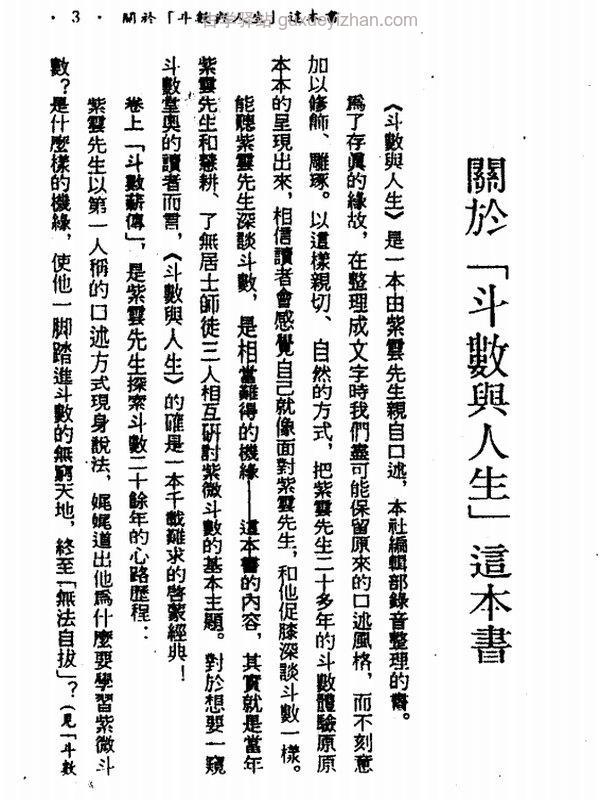 ·3· 關於「斗數與人生」這本書
自学驿站——guoxueyizhan.com
關於「斗數與人生」這本書
《斗數與人生》是一本由紫雲先生親自口述，本社編輯部錄音整理的書。
爲了存眞的緣故，在整理成文字時我們盡可能保留原來的口述風格，而不刻意
加以修飾、雕琢。以這樣親切、自然的方式，把紫雲先生二十多年的斗數體驗原原
本本的呈現出來，相信讀者會感覺自己就像面對紫雲先生，和他促膝深談斗數一樣。
能聽紫雲先生深談斗數，是相當難得的機緣——這本書的內容，其實就是當年
紫雲先生和慧耕、了無居士師徒三人相互研討紫微斗數的基本主題。對於想要一窺
斗數堂奧的讀者而言，《斗數與人生》的確是一本千載難求的啓蒙經典！
卷上「斗數薪傳」，是紫雲先生探索斗數二十餘年的心路歷程：
紫雲先生以第一人稱的口述方式現身說法，娓娓道出他爲什麼要學習紫微斗
數？是什麼樣的機緣，使他一脚踏進斗數的無窮天地，終至「無法自拔」？（見「斗數